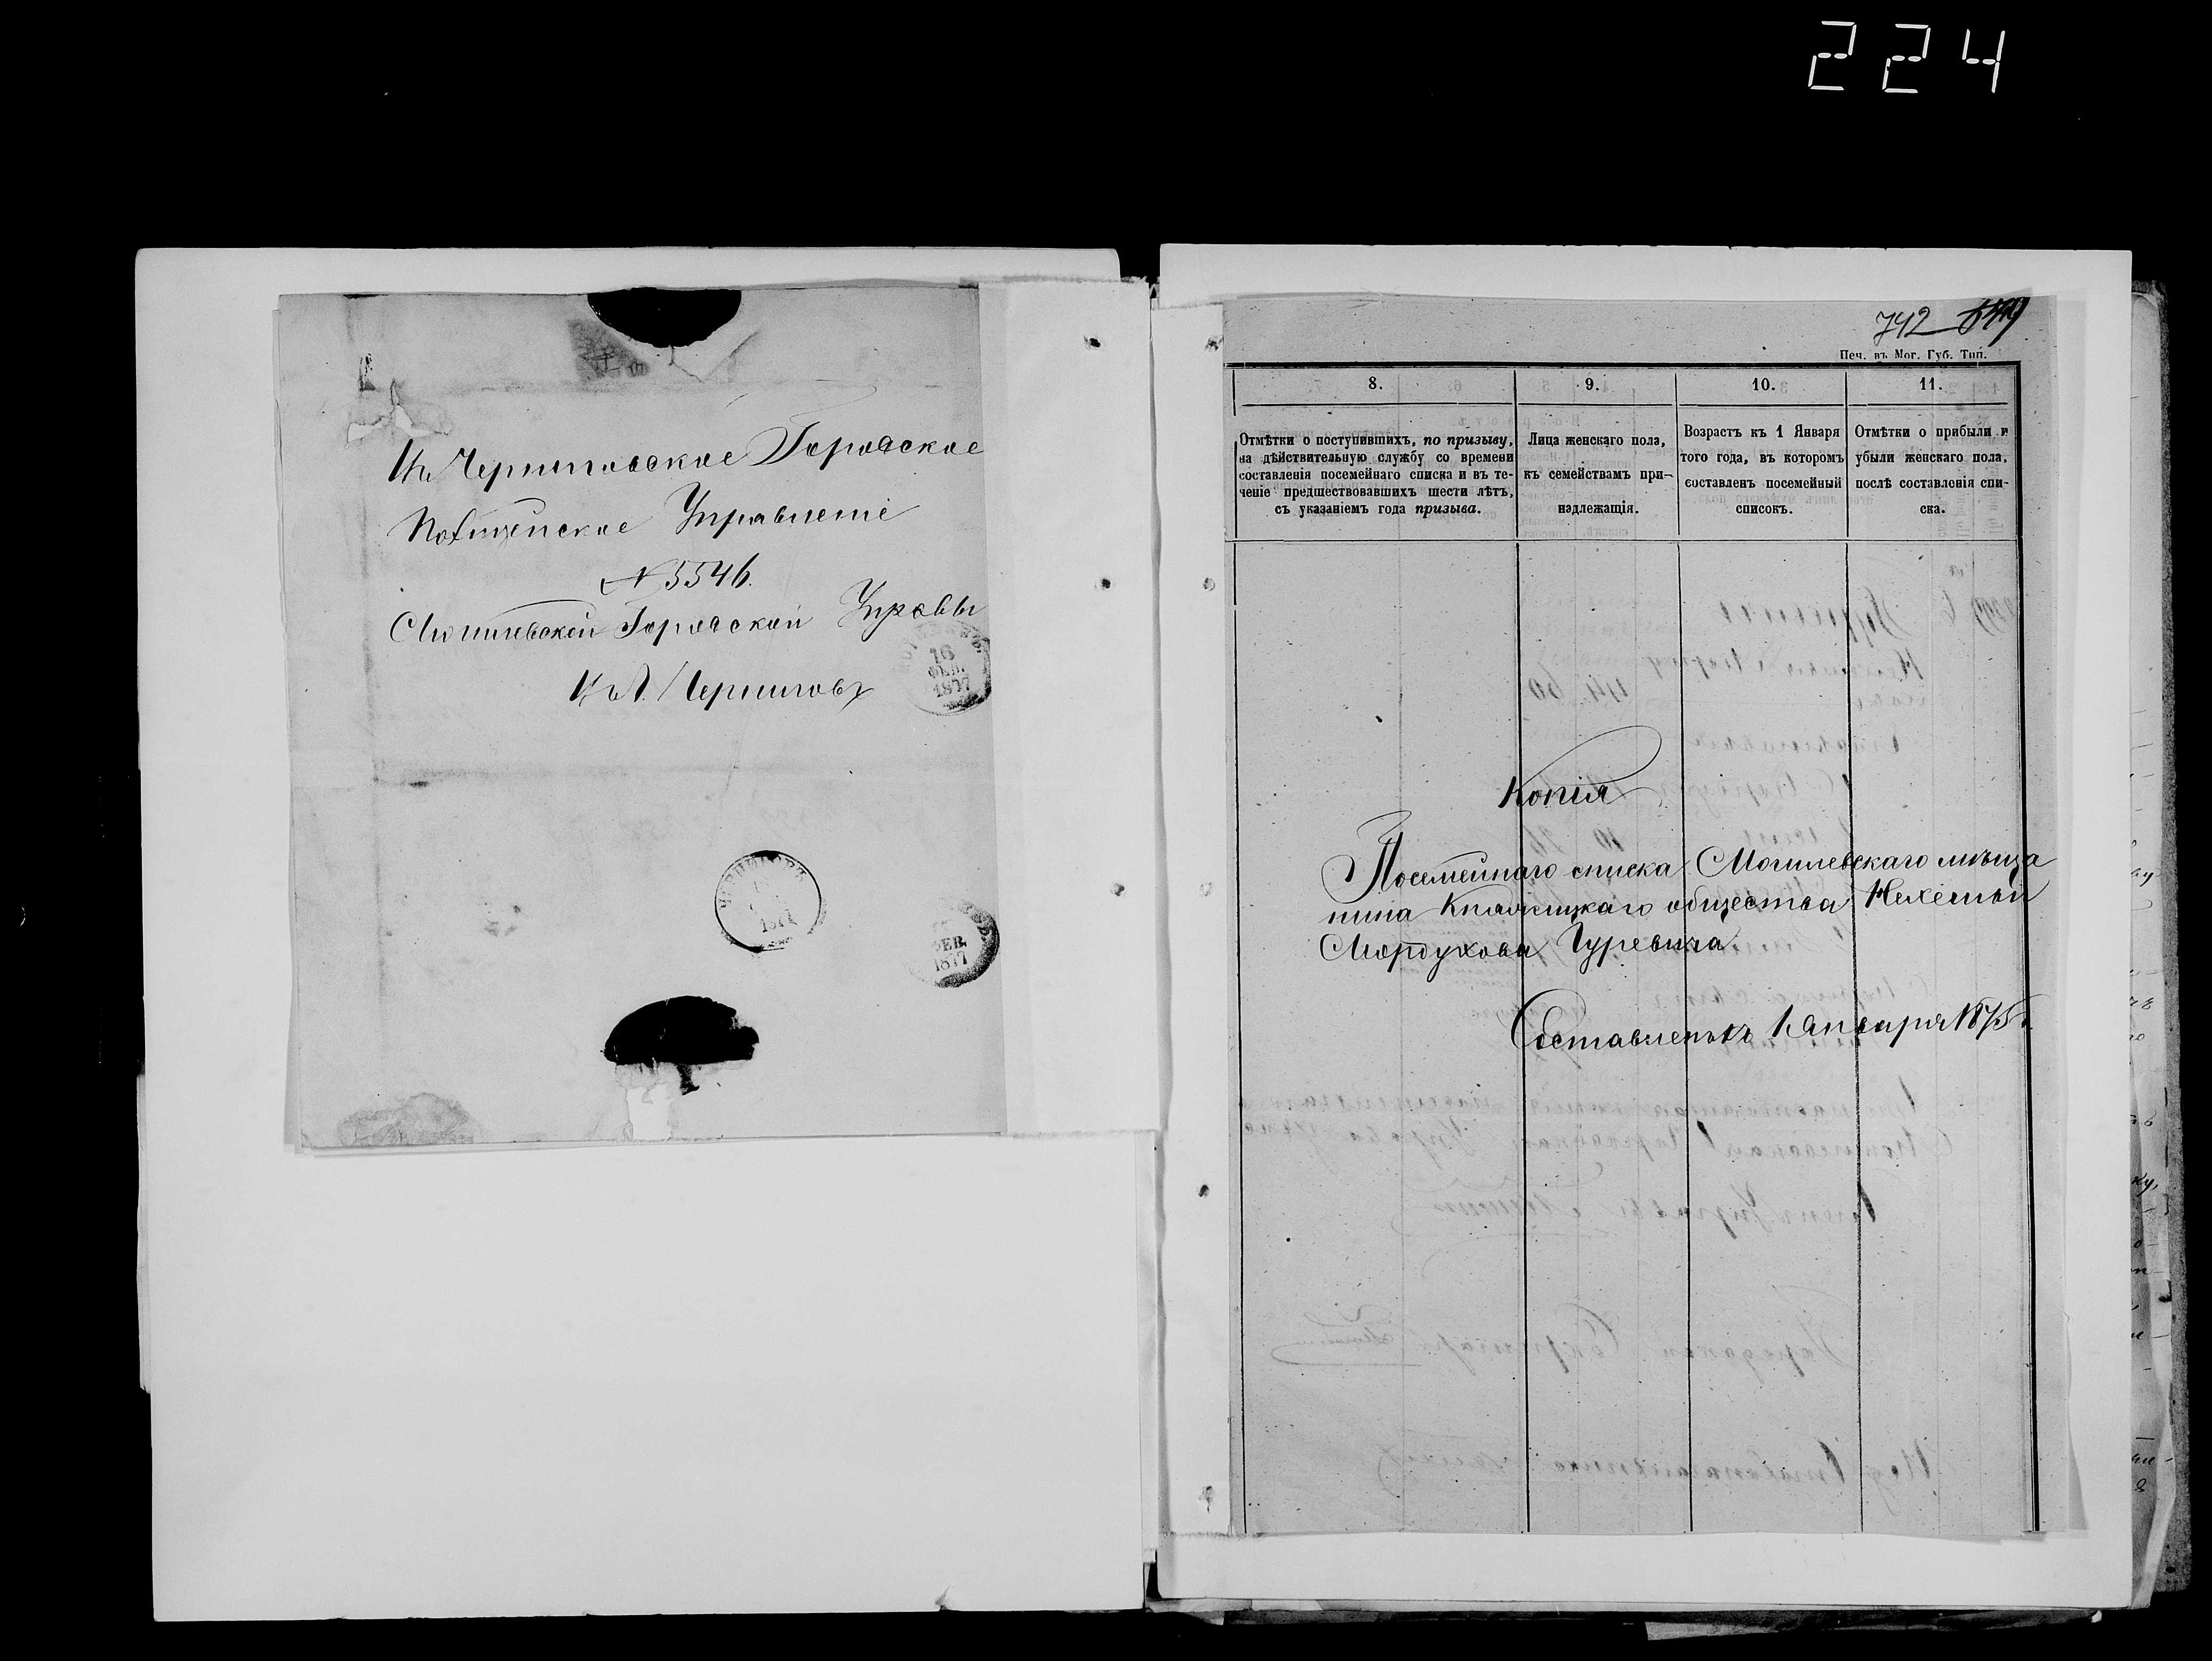 224
Въ Черниговское Городское
Полицейское Управленіе
№ 5546.
Могилевской Городской Управы
Въ г. Черниговъ
16
ФЕВ.
1877
ЧЕРНИГОВЪ
1877
ФЕВ.
1877
742
Печ. въ Мог. Губ. Тип.
8.
9.
10.
11.
Отмѣтки о поступившихъ, по призыву,
на дѣйствительную службу со времени
составленія посемейнаго списка и въ те-
ченіе предшествовавшихъ шести лѣтъ,
съ указаніемъ года призыва.
Лица женскаго пола,
къ семействамъ при-
надлежащія.
Возрастъ къ 1 Января
того года, въ которомъ
составленъ посемейный
списокъ.
Отмѣтки о прибыли и
убыли женскаго пола,
послѣ составленія спи-
ска.
Копія
Посемейнаго списка Могилевскаго мѣща
нина Княжицкаго общества Нехемьи
Мордухова Гуревича
Составленъ къ 1 Января 1875 г.